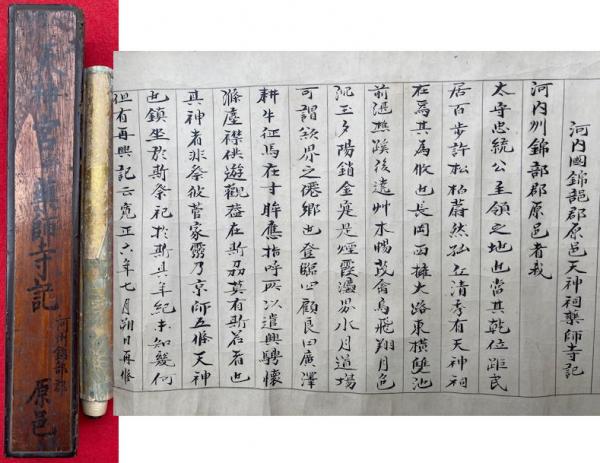 天神宮
薬師寺記
河州錦部郡
原邑
河内國錦部郡原邑天神祠藥師寺記
河内州錦部郡原邑者我
太守忠統公主領之地也當其乾位距民
居百歩許松柏蔚然孤立清秀有天神祠
在焉其為攸也長岡西擁大路東橫雙池
前湛樵蹊後遶艸木暢茂禽鳥飛翔月色
沉玉夕陽銷金寔是煙霞灃界水月道場
可謂欲界之僊鄉也登臨四顧良田廣澤
耕牛征馬在寸眸應指呼所以遣興騁懷
滌塵襟供遊觀蓋在斯焉莫有斯名者也
其神者非祭攸菅家靈乃京師五條天神
也鎮坐於斯祭祀於斯其年紀未知幾何
但有再興記云寛正六年七月朔日再修